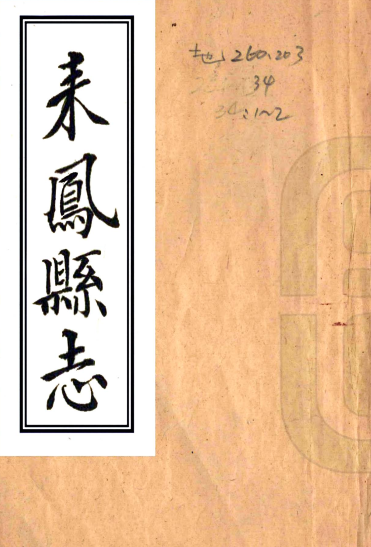 来鳳縣志
地 260.203
34
34:1~2